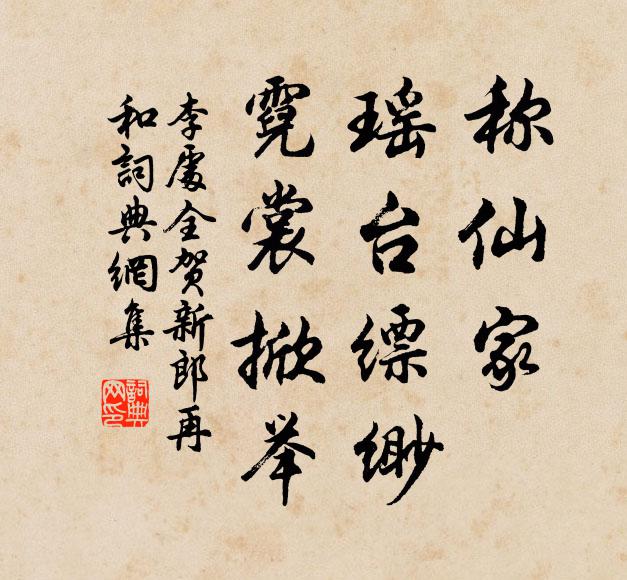 称仙家
瑶台缥缈
霓裳掀举
李处全贺新郎再
和詞典網集
詞典
网印